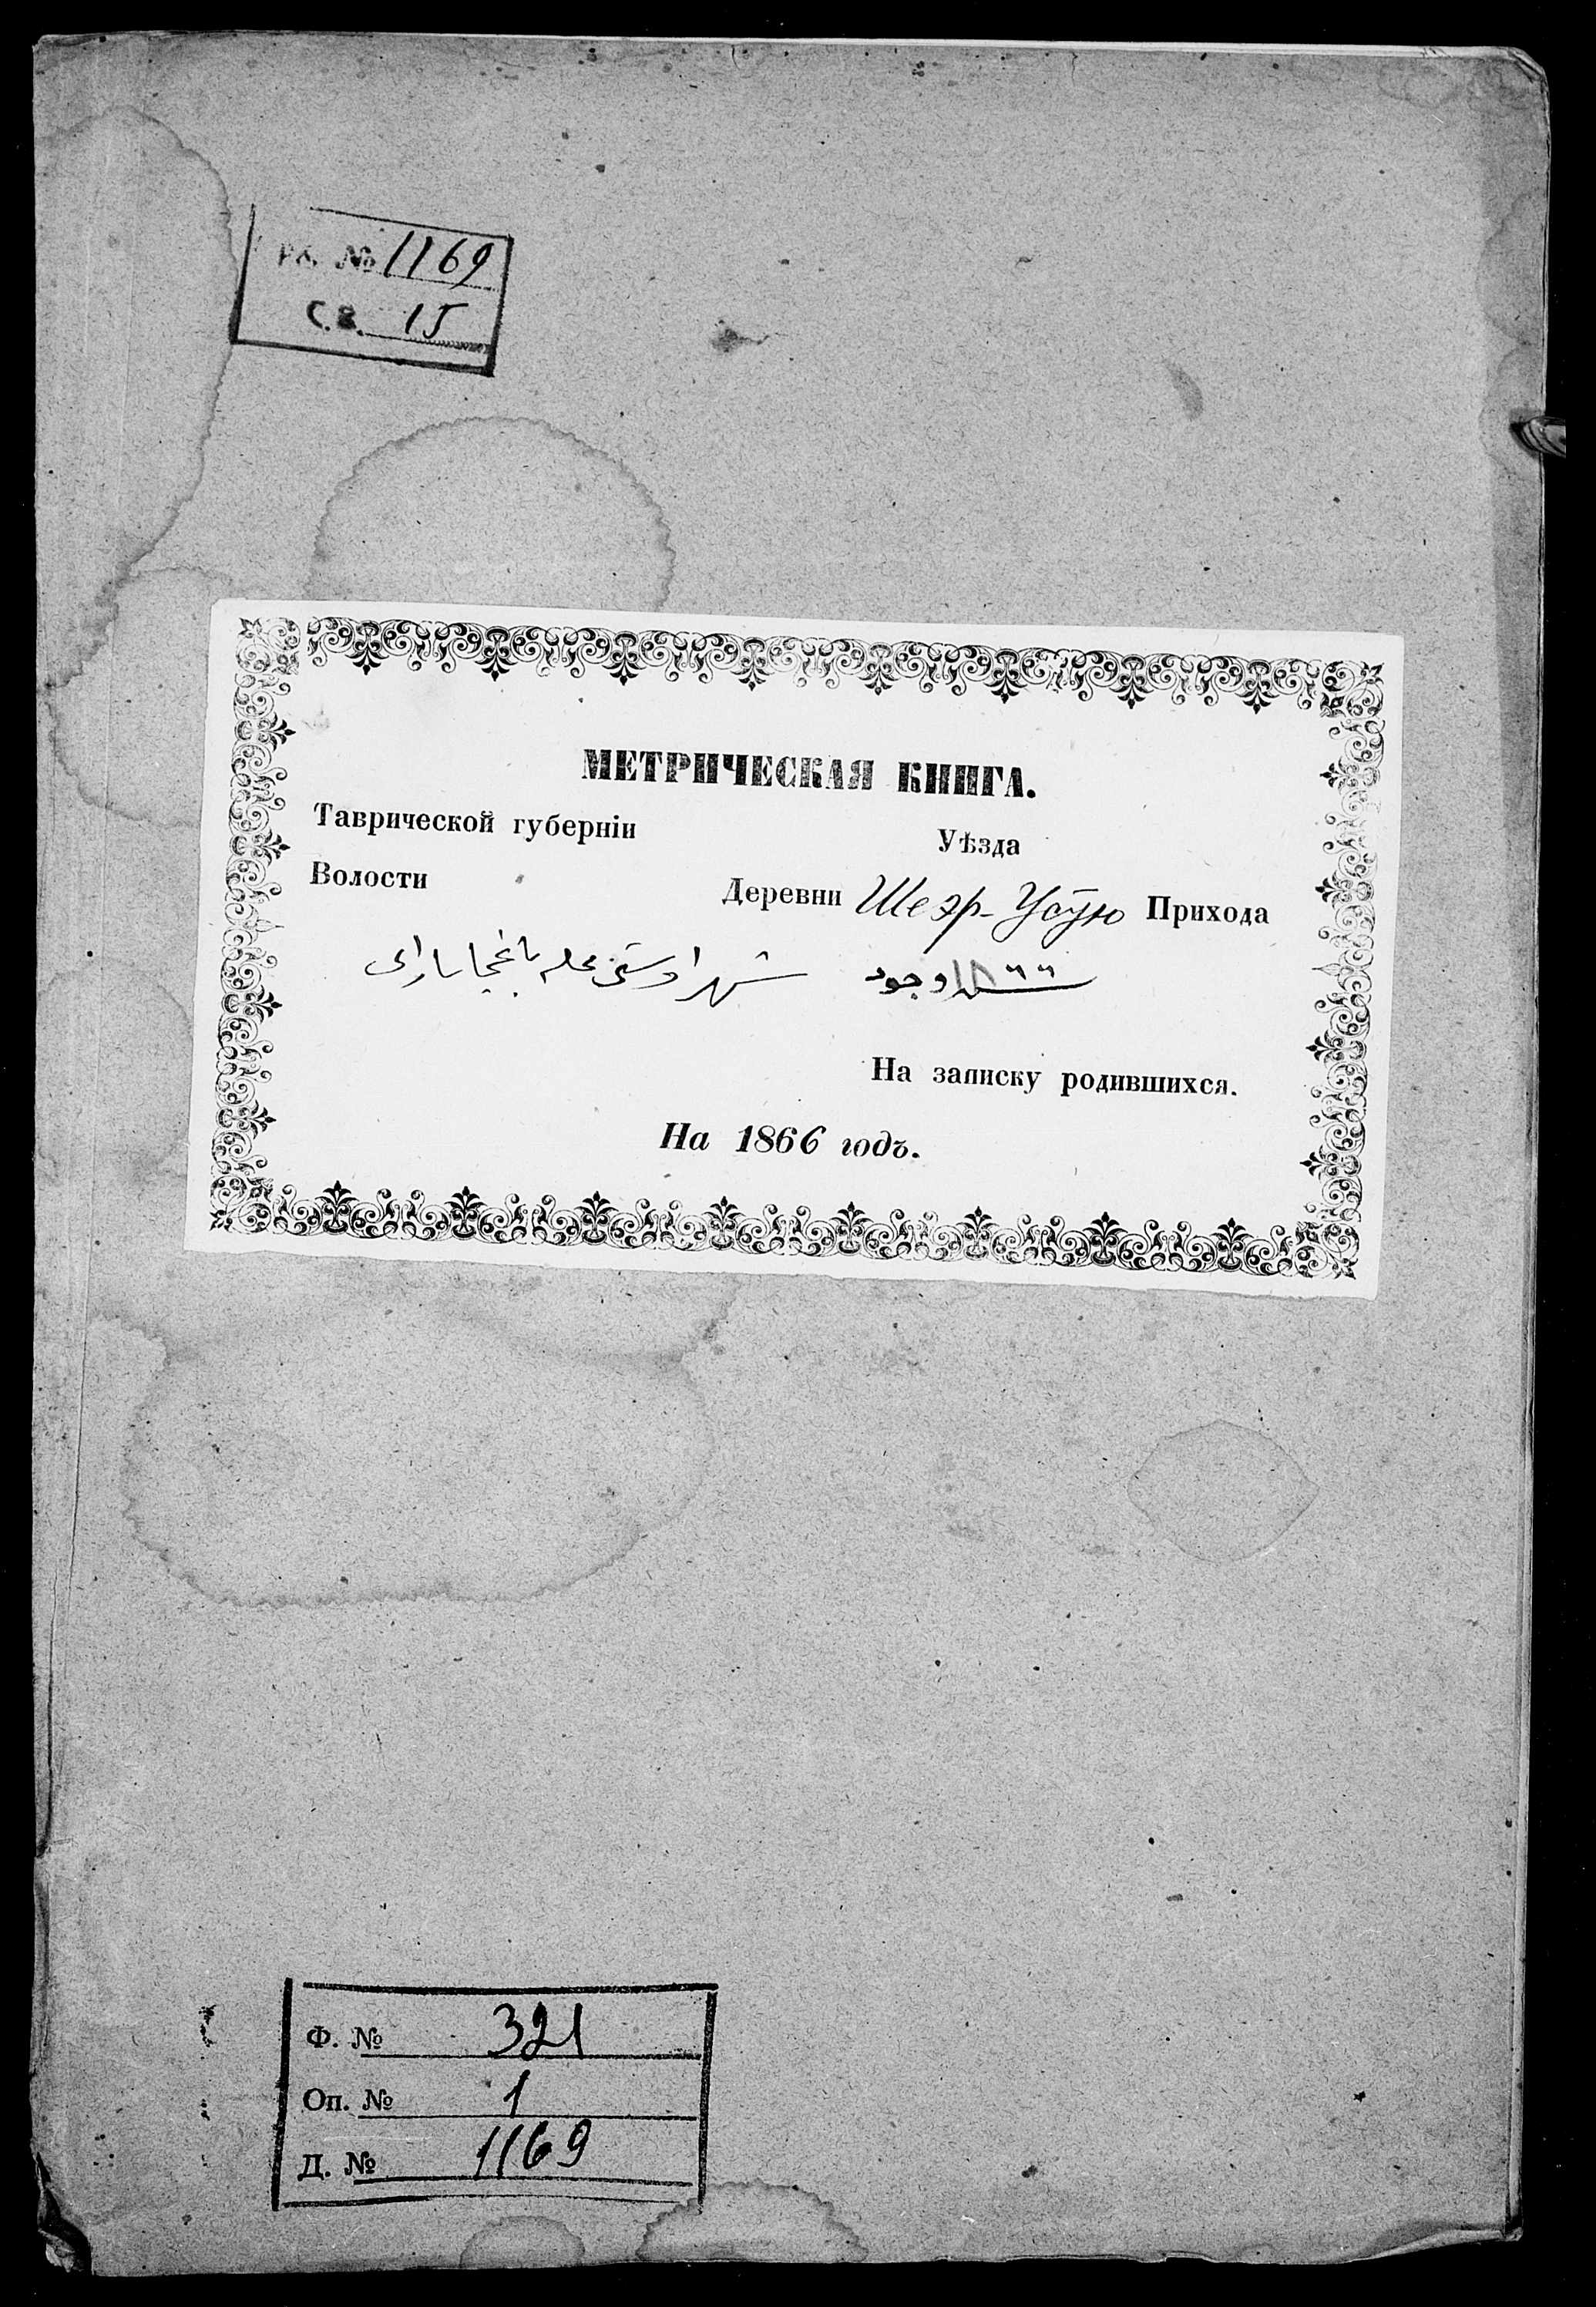 № 1169
С.В. 15
МЕТРИЧЕСКАЯ КНИГА.
Таврической губерніи Уѣзда
Волости Деревни Шеэр-Усту Прихода
شهر اوستى محله باغچاسراى
١٨٦٦
На записку родившихся.
На 1866 годъ.
Ф. № 321
Оп. № 1
Д. № 1169